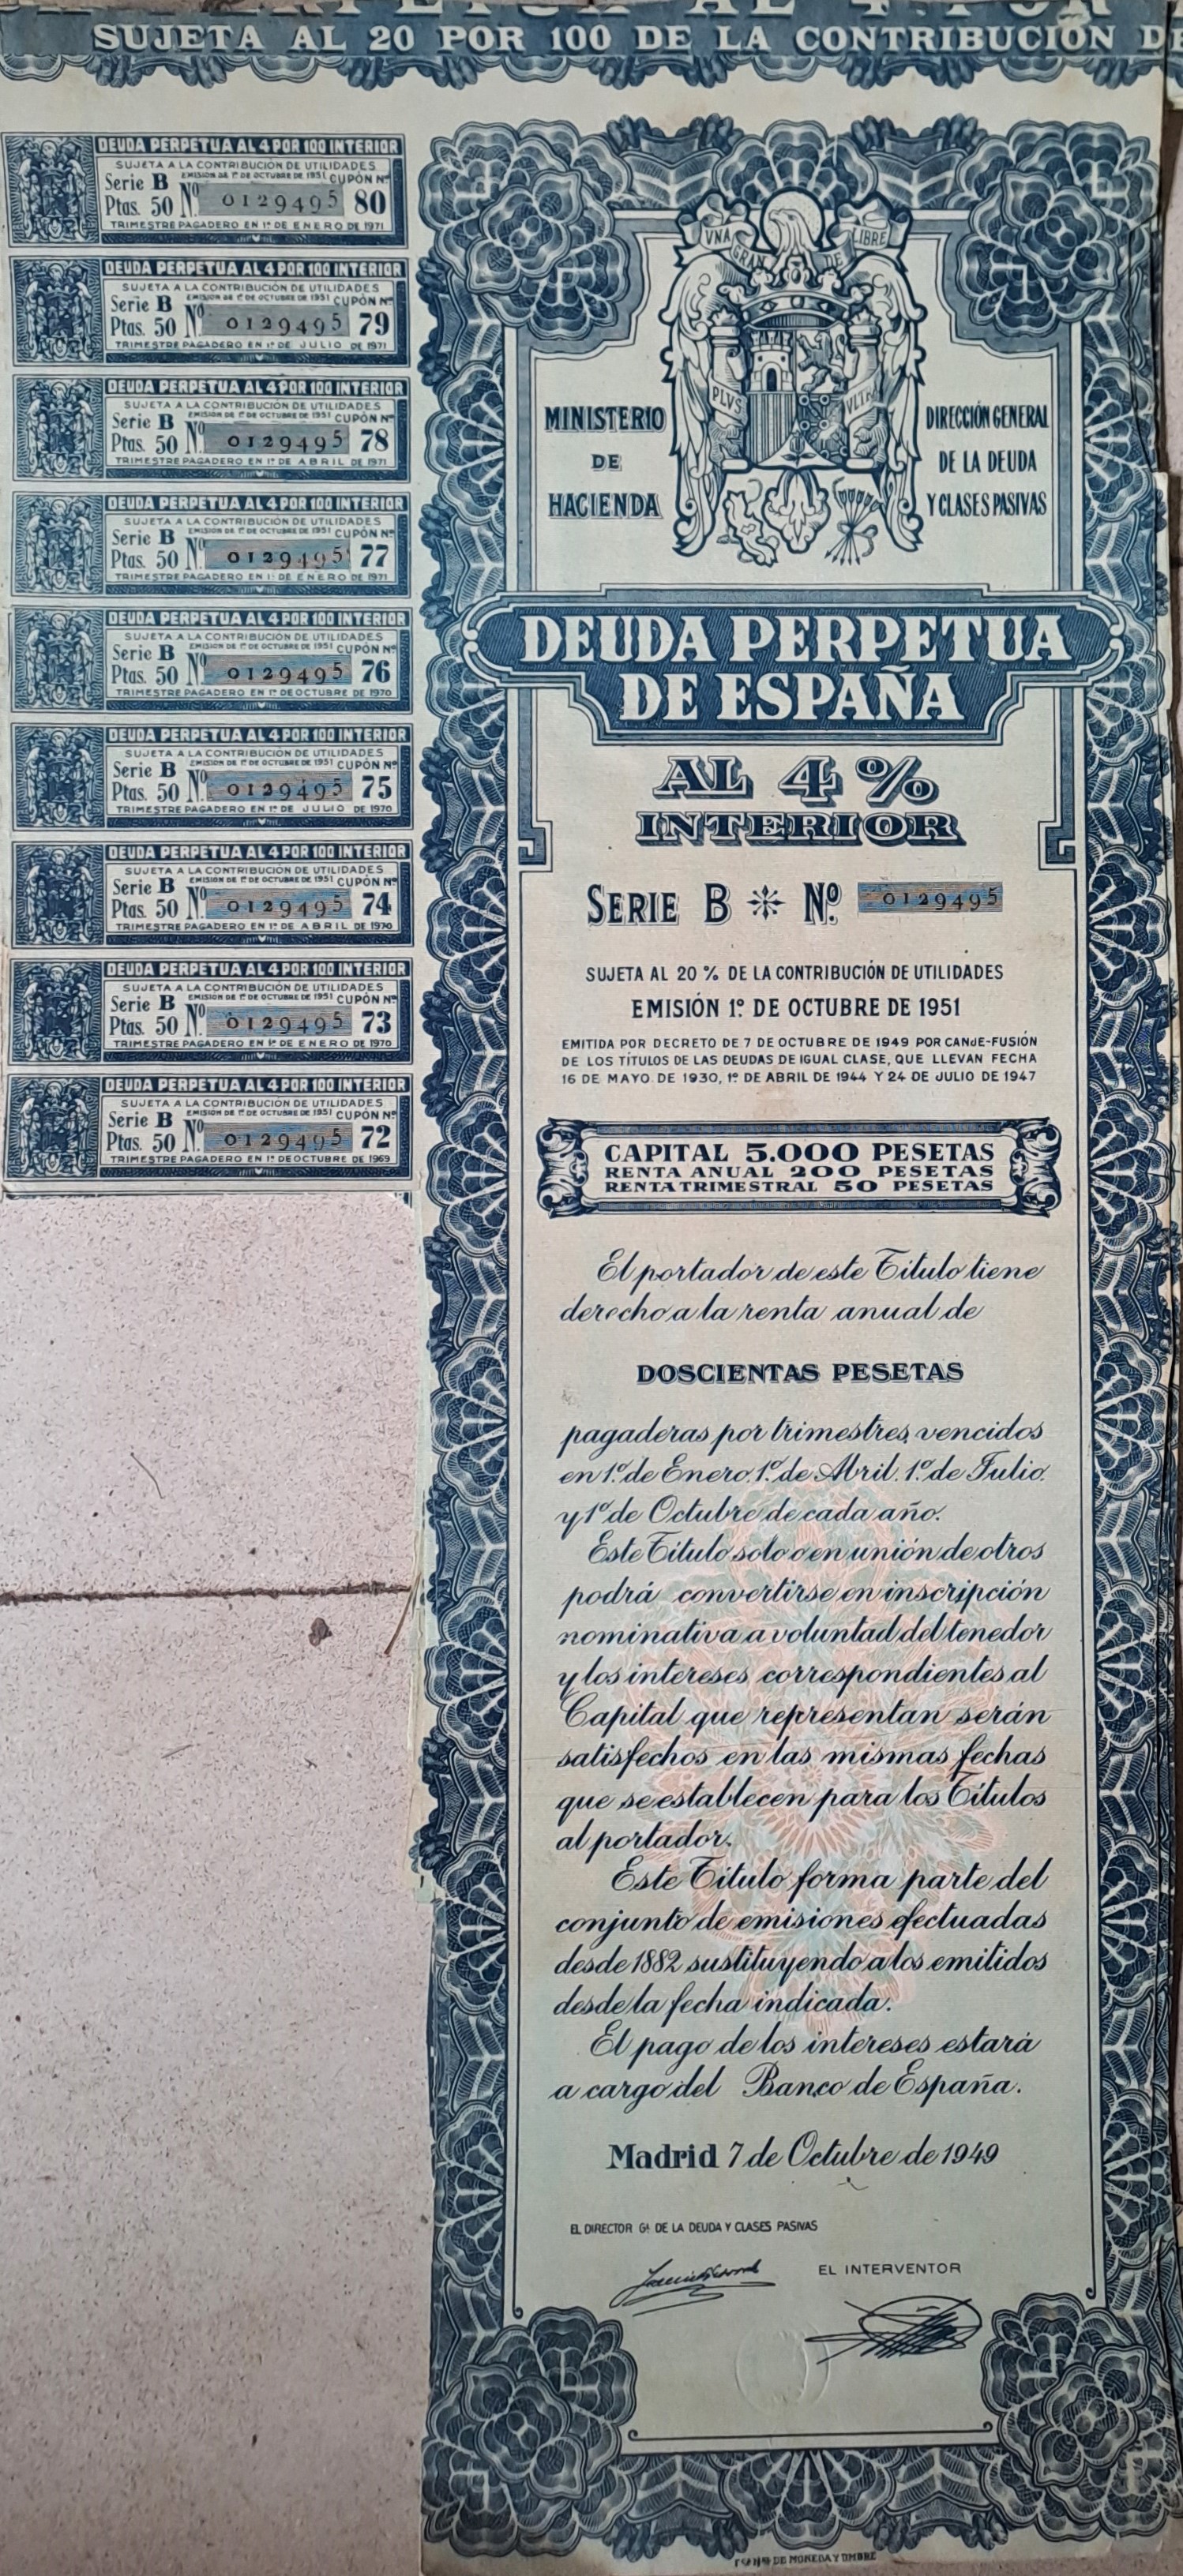 SUJETA AL 20 POR 100 DE LA CONTRIBUCIÓN DE
DEUDA PERPETUA AL 4 POR 100 INTERIOR
SUJETA A LA CONTRIBUCIÓN DE UTILIDADES
EMISIÓN DE 1º DE OCTUBRE DE 1951 CUPÓN Nº
Serie B
Ptas. 50 Nº 0129495 80
TRIMESTRE PAGADERO EN 1º DE ENERO DE 1971
DEUDA PERPETUA AL 4 POR 100 INTERIOR
SUJETA A LA CONTRIBUCIÓN DE UTILIDADES
EMISIÓN DE 1º DE OCTUBRE DE 1951 CUPÓN Nº
Serie B
Ptas. 50 Nº 0129495 79
TRIMESTRE PAGADERO EN 1º DE JULIO DE 1971
DEUDA PERPETUA AL 4 POR 100 INTERIOR
SUJETA A LA CONTRIBUCIÓN DE UTILIDADES
EMISIÓN DE 1º DE OCTUBRE DE 1951 CUPÓN Nº
Serie B
Ptas. 50 Nº 0129495 78
TRIMESTRE PAGADERO EN 1º DE ABRIL DE 1971
DEUDA PERPETUA AL 4 POR 100 INTERIOR
SUJETA A LA CONTRIBUCIÓN DE UTILIDADES
EMISIÓN DE 1º DE OCTUBRE DE 1951 CUPÓN Nº
Serie B
Ptas. 50 Nº 0129495 77
TRIMESTRE PAGADERO EN 1º DE ENERO DE 1971
DEUDA PERPETUA AL 4 POR 100 INTERIOR
SUJETA A LA CONTRIBUCIÓN DE UTILIDADES
EMISIÓN DE 1º DE OCTUBRE DE 1951 CUPÓN Nº
Serie B
Ptas. 50 Nº 0129495 76
TRIMESTRE PAGADERO EN 1º DE OCTUBRE DE 1970
DEUDA PERPETUA AL 4 POR 100 INTERIOR
SUJETA A LA CONTRIBUCIÓN DE UTILIDADES
EMISIÓN DE 1º DE OCTUBRE DE 1951 CUPÓN Nº
Serie B
Ptas. 50 Nº 0129495 75
TRIMESTRE PAGADERO EN 1º DE JULIO DE 1970
DEUDA PERPETUA AL 4 POR 100 INTERIOR
SUJETA A LA CONTRIBUCIÓN DE UTILIDADES
EMISIÓN DE 1º DE OCTUBRE DE 1951 CUPÓN Nº
Serie B
Ptas. 50 Nº 0129495 74
TRIMESTRE PAGADERO EN 1º DE ABRIL DE 1970
DEUDA PERPETUA AL 4 POR 100 INTERIOR
SUJETA A LA CONTRIBUCIÓN DE UTILIDADES
EMISIÓN DE 1º DE OCTUBRE DE 1951 CUPÓN Nº
Serie B
Ptas. 50 Nº 0129495 73
TRIMESTRE PAGADERO EN 1º DE ENERO DE 1970
DEUDA PERPETUA AL 4 POR 100 INTERIOR
SUJETA A LA CONTRIBUCIÓN DE UTILIDADES
EMISIÓN DE 1º DE OCTUBRE DE 1951 CUPÓN Nº
Serie B
Ptas. 50 Nº 0129495 72
TRIMESTRE PAGADERO EN 1º DE OCTUBRE DE 1969
VNA GRANDE LIBRE
PLVS VLTRA
MINISTERIO
DE
HACIENDA
DIRECCIÓN GENERAL
DE LA DEUDA
Y CLASES PASIVAS
DEUDA PERPETUA
DE ESPAÑA
AL 4%
INTERIOR
SERIE B Nº 0129495
SUJETA AL 20 % DE LA CONTRIBUCIÓN DE UTILIDADES
EMISIÓN 1º DE OCTUBRE DE 1951
EMITIDA POR DECRETO DE 7 DE OCTUBRE DE 1949 POR CANJE-FUSIÓN
DE LOS TÍTULOS DE LAS DEUDAS DE IGUAL CLASE, QUE LLEVAN FECHA
16 DE MAYO DE 1930, 1º DE ABRIL DE 1944 Y 24 DE JULIO DE 1947
CAPITAL 5.000 PESETAS
RENTA ANUAL 200 PESETAS
RENTA TRIMESTRAL 50 PESETAS
El portador de este Título tiene
derecho a la renta anual de
DOSCIENTAS PESETAS
pagaderas por trimestres, vencidos
en 1º de Enero, 1º de Abril, 1º de Julio
y 1º de Octubre de cada año.
Este Título solo o en unión de otros
podrá convertirse en inscripción
nominativa a voluntad del tenedor
y los intereses correspondientes al
Capital que representan serán
satisfechos en las mismas fechas
que se establecen para los Títulos
al portador.
Este Título forma parte del
conjunto de emisiones efectuadas
desde 1882 sustituyendo a los emitidos
desde la fecha indicada.
El pago de los intereses estará
a cargo del Banco de España.
Madrid 7 de Octubre de 1949
EL DIRECTOR Gª DE LA DEUDA Y CLASES PASIVAS
EL INTERVENTOR
DE MONEDA Y TIMBRE